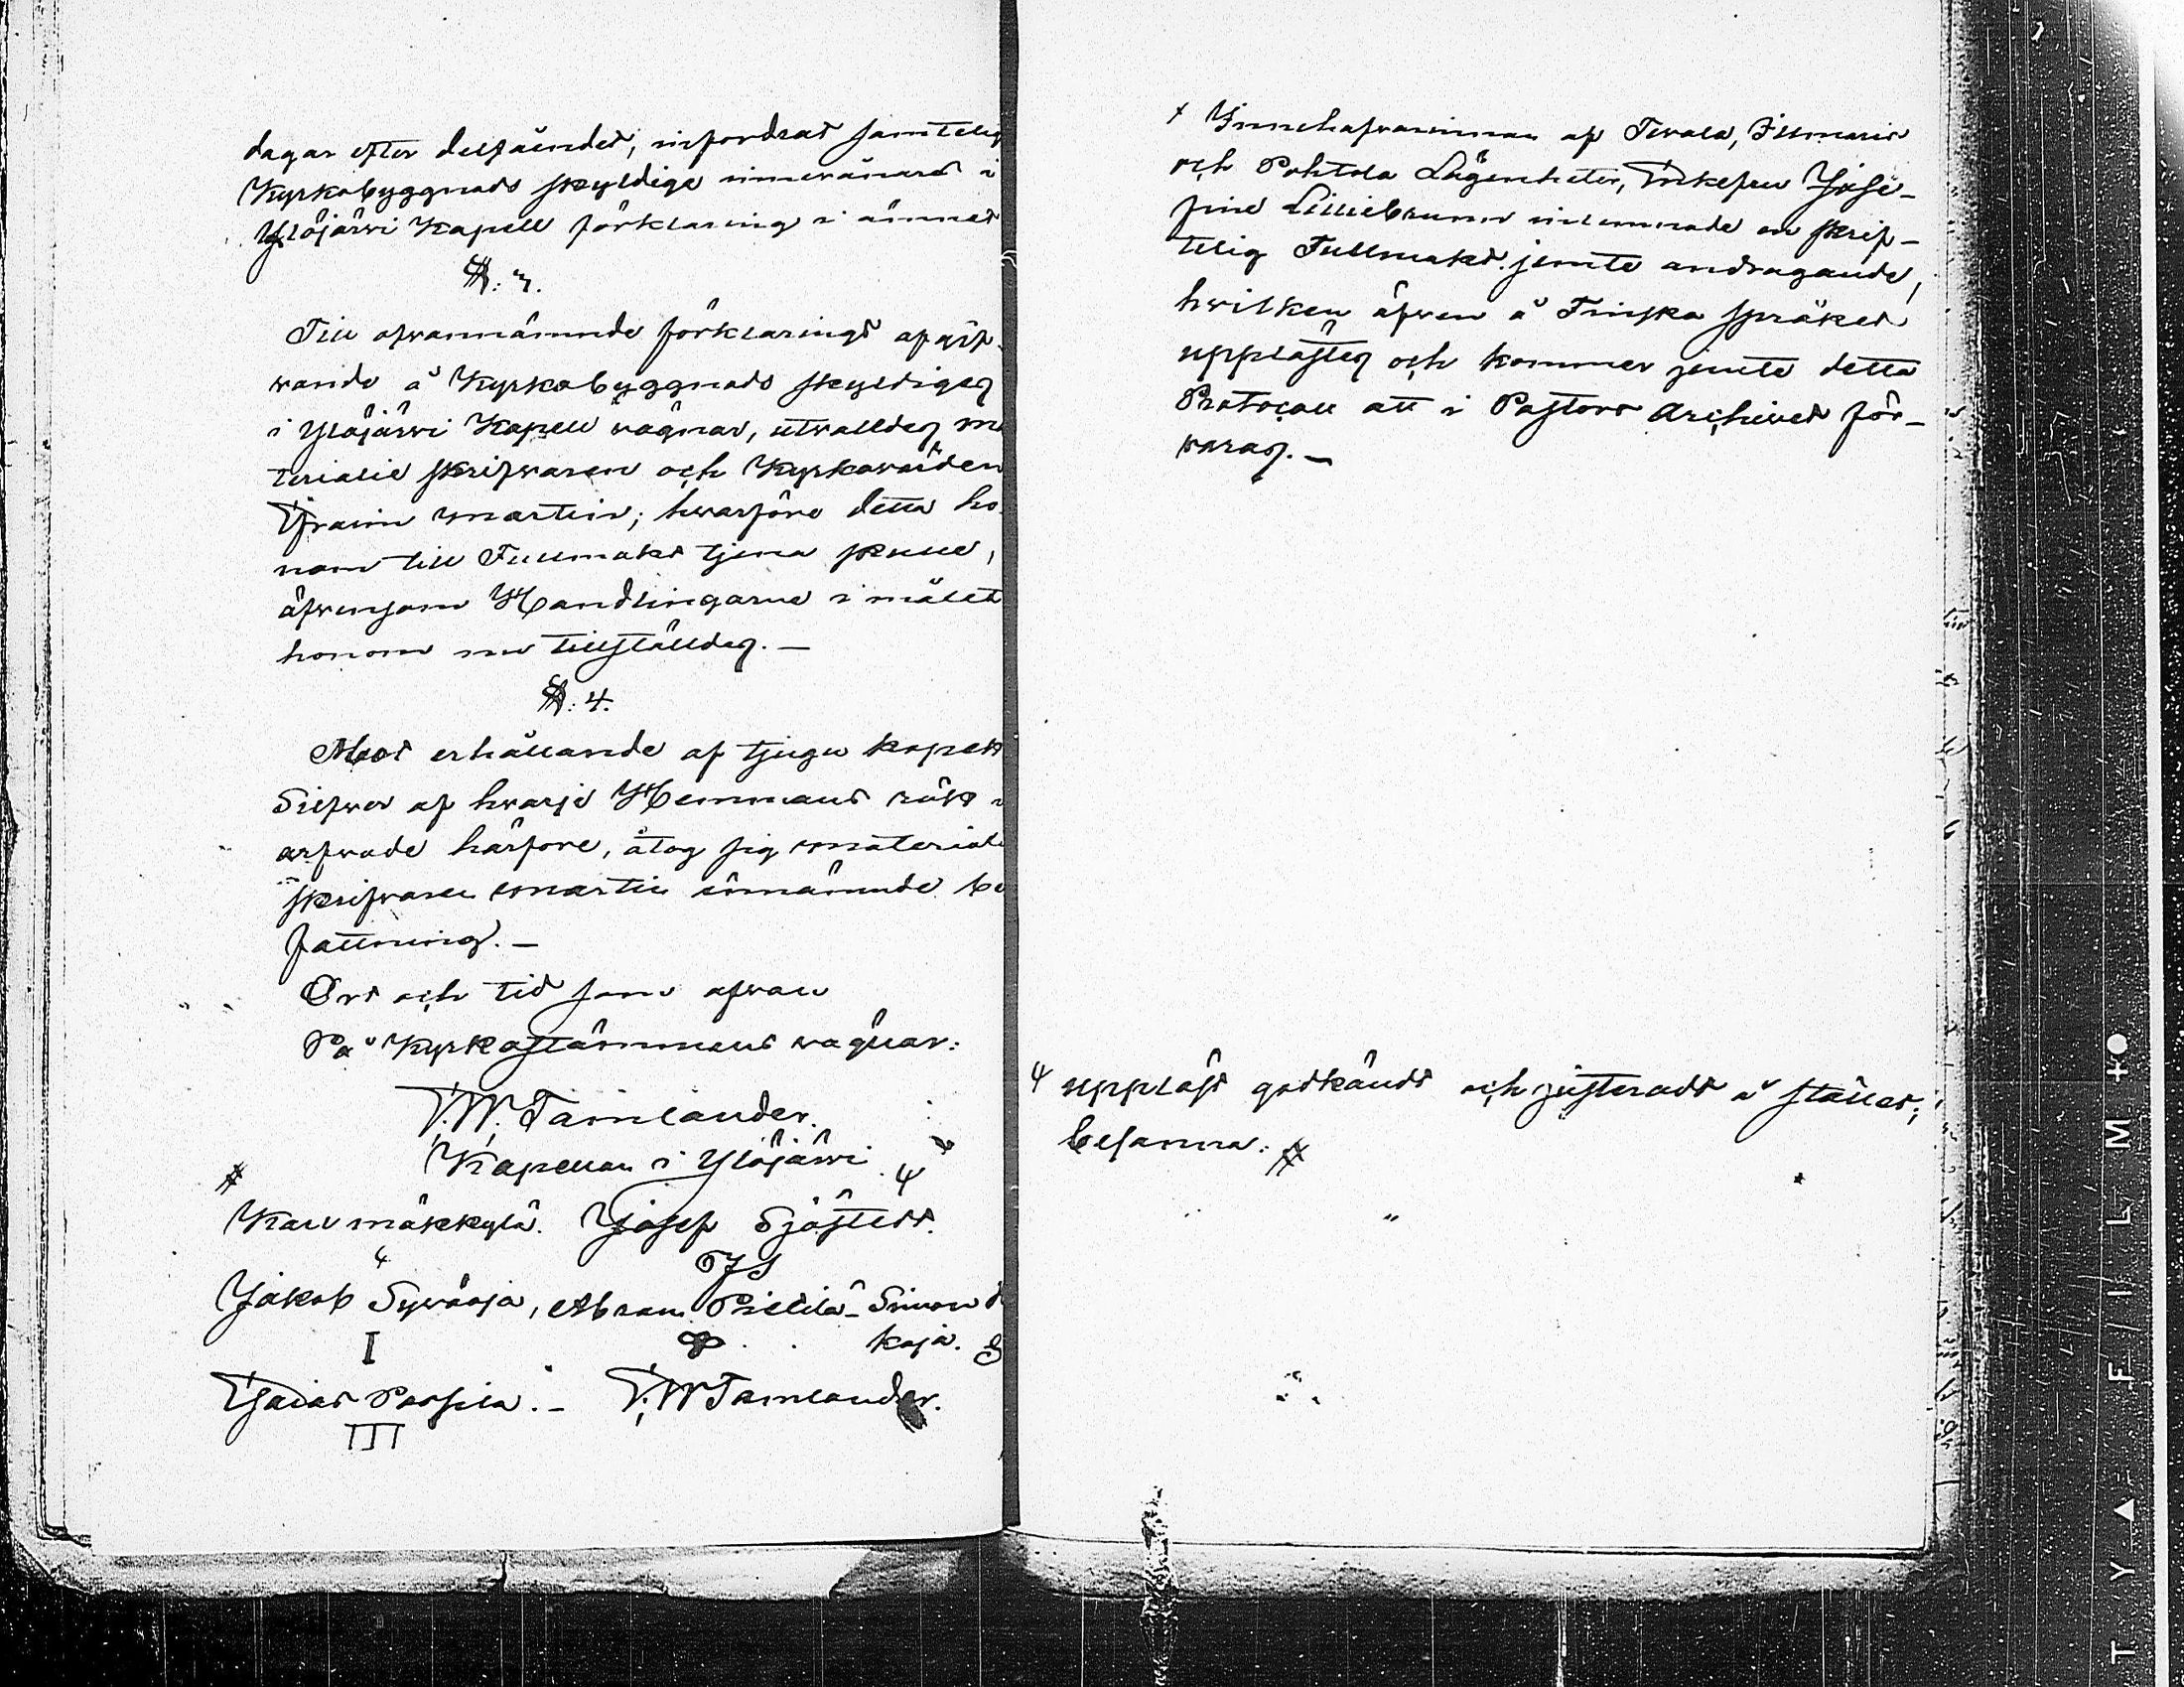 dagar efter delfåendet, infordrat samtelig
Kyrkobyggnads skyldige innevånares i
Ylöjärwi Kapell förklaring i ämnet
§. 3.
Till ofvannämnde förklarings afgif-
wande å Kyrkobyggnads skyldiges
i Ylöjärwi Kapell vägnar, utvalldes Ma
terialie skrifvaren och Kyrkovärden
Efraim Martin; hvarföre detta ho-
nom till Fullmakt tjena skulle,
äfvensom Handlingarne i målet
honom nu tillställdes. —
§. 4.
Mot erhållande af tjugu kopek
Silfver af hvarje Hemmans rök i
arfvode härföre, åtog sig Materiali
skrifvaren Martin ennämnde be
fattning. —
Ort och tid som ofvan
På Kyrkostämmans vägnar:
F. W. Tamlander.
Kapellan i Ylöjärwi ψ
#
Karl Mäkkylä. Josef Sjöstedt.
JS
Jakob Sywäoja, Abram Pielilä - Simon
koja.
I
Esaias Passila. - F. W Tamlander.
III
+ Innehafvarinnan af Terala, Ilmaris
och Pohtola Lägenheter, Enkefru José-
fine Lilliebrunn inlemnade en skrif-
telig Fullmakt jemte andragande,
hvilken äfven å Finska språket
upplästes och kommer jemte detta
Protocoll att i Pastors Archivet för-
varas. —
ψ uppläst godkändt och justeradt å stället;
besanna: #